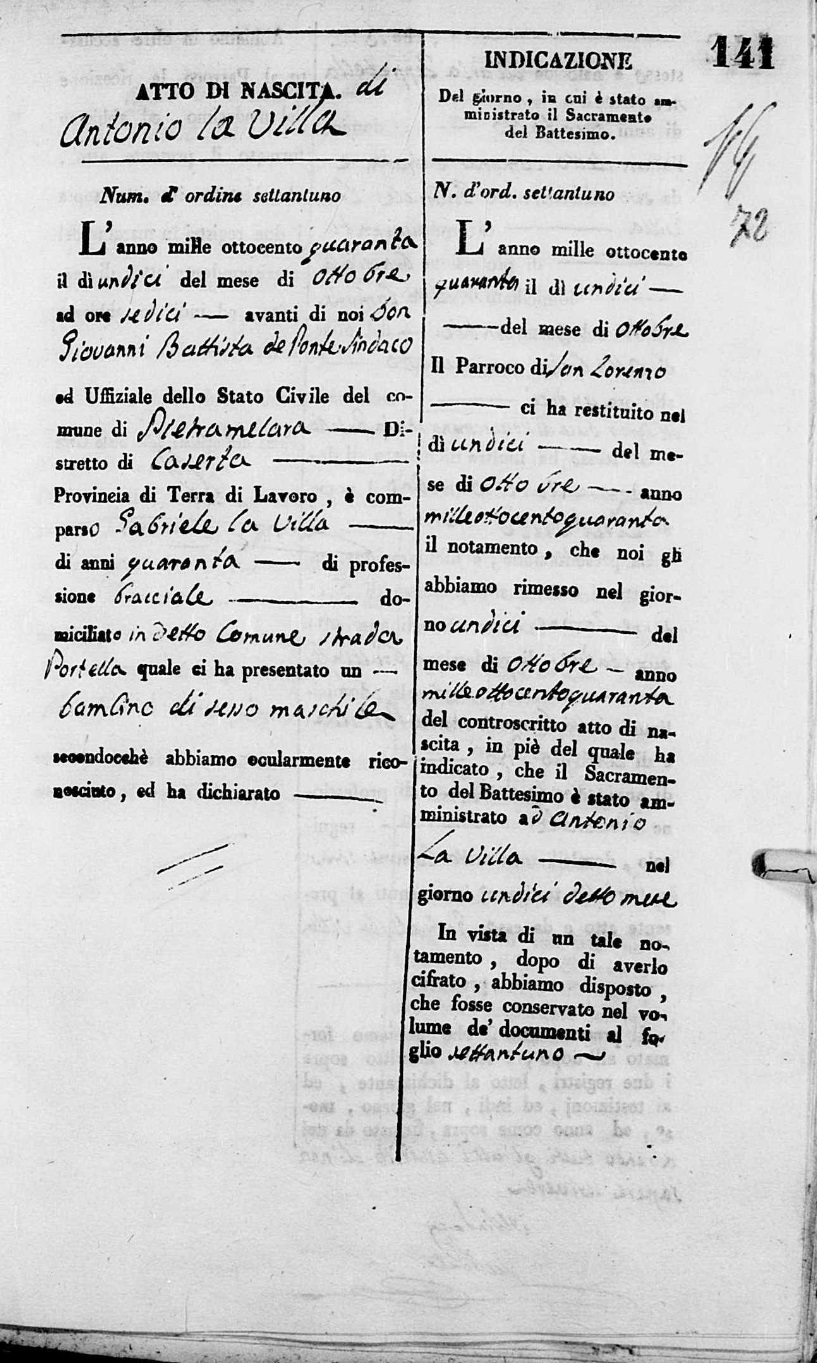 141
ATTO DI NASCITA. di
Antonio la Villa
Num. d' ordine settantuno
L'anno mille ottocento quaranta
il dì undici del mese di Ottobre
ad ore sedici — avanti di noi Don
Giovanni Battista de Ponte Sindaco
ed Uffiziale dello Stato Civile del co-
mune di Pietramelara — Di-
stretto di Caserta —
Provincia di Terra di Lavoro , è com-
parso Gabriele la Villa —
di anni quaranta — di profes-
sione bracciale — do-
miciliato in detto Comune strada
Portella quale ci ha presentato un —
bambino di sesso maschile
secondocchè abbiamo ocularmente rico-
nosciuto , ed ha dichiarato —
INDICAZIONE
Del giorno , in cui è stato am-
ministrato il Sacramento
del Battesimo.
N. d'ord. settantuno
L' anno mille ottocento
quaranta il dì undici —
— del mese di Ottobre
Il Parroco di San Lorenzo
— ci ha restituito nel
dì undici — del me-
se di Ottobre — anno
milleottocentoquaranta
il notamento , che noi gli
abbiamo rimesso nel gior-
no undici — del
mese di Ottobre — anno
milleottocentoquaranta
del controscritto atto di na-
scita , in piè del quale ha
indicato , che il Sacramen-
to del Battesimo è stato am-
ministrato ad Antonio
La Villa — nel
giorno undici detto mese
In vista di un tale no-
tamento , dopo di averlo
cifrato , abbiamo disposto ,
che fosse conservato nel vo-
lume de' documenti al fo-
glio settantuno —
72